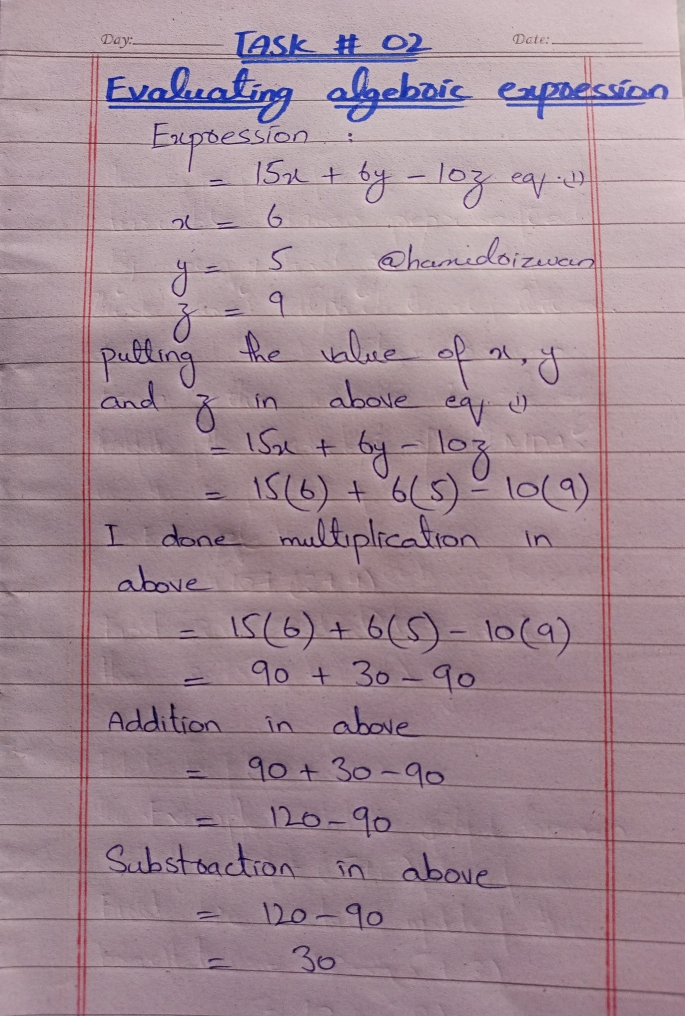 Day: TASK # 02 Date:
Evaluating algebraic expression
Expression :
= 15x + 6y - 10z eq. (1)
x = 6
y = 5 @hamidrizwan
z = 9
putting the value of x, y
and z in above eq (1)
= 15x + 6y - 10z
= 15(6) + 6(5) - 10(9)
I done multiplication in
above
= 15(6) + 6(5) - 10(9)
= 90 + 30 - 90
Addition in above
= 90 + 30 - 90
= 120 - 90
Substraction in above
= 120 - 90
= 30